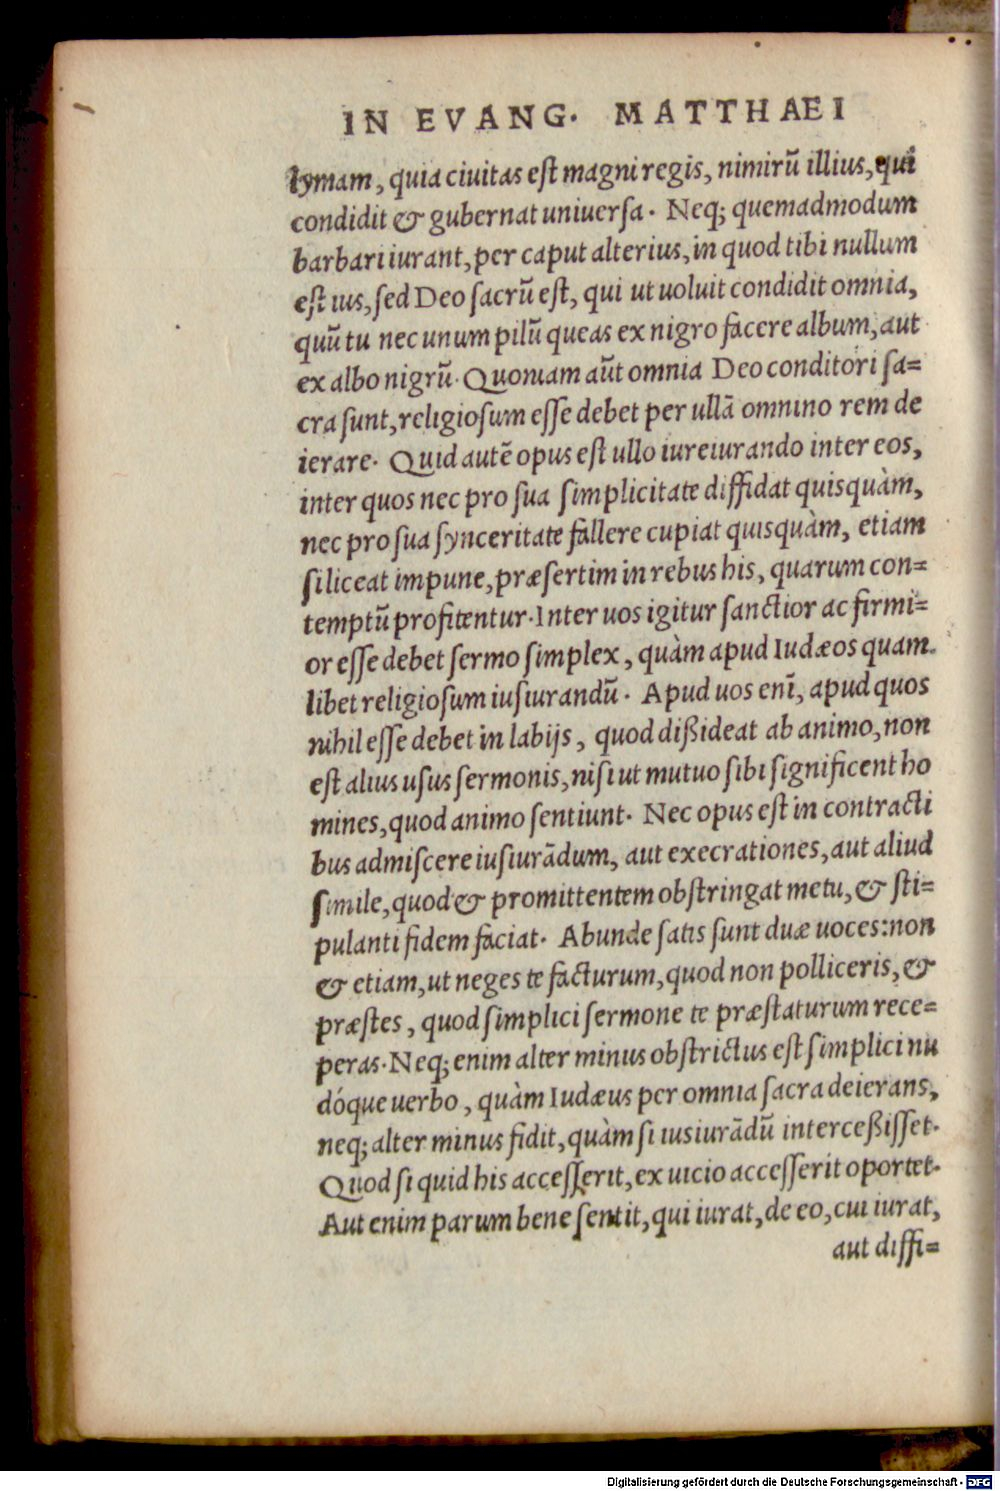 IN EVANG. MATTHAEI
lymam, quia ciuitas est magni regis, nimirū illius, qui
condidit & gubernat uniuersa. Neq; quemadmodum
barbari iurant, per caput alterius, in quod tibi nullum
est ius, sed Deo sacrū est, qui ut uoluit condidit omnia,
quū tu nec unum pilū queas ex nigro facere album, aut
ex albo nigrū. Quoniam aūt omnia Deo conditori sa=
cra sunt, religiosum esse debet per ullā omnino rem de
ierare. Quid autē opus est ullo iureiurando inter eos,
inter quos nec pro sua simplicitate diffidat quisquàm,
nec pro sua synceritate fallere cupiat quisquàm, etiam
si liceat impune, præsertim in rebus his, quarum con=
temptū profitentur. Inter uos igitur sanctior ac firmi=
or esse debet sermo simplex, quàm apud Iudæos quam.
libet religiosum iusiurandū. Apud uos enī, apud quos
nihil esse debet in labijs, quod dißideat ab animo, non
est alius usus sermonis, nisi ut mutuo sibi significent ho
mines, quod animo sentiunt. Nec opus est in contracti
bus admiscere iusiurādum, aut execrationes, aut aliud
simile, quod & promittentem obstringat metu, & sti=
pulanti fidem faciat. Abunde satis sunt duæ uoces: non
& etiam, ut neges te facturum, quod non polliceris, &
præstes, quod simplici sermone te præstaturum rece=
peras. Neq; enim alter minus obstrictus est simplici nu
dóque uerbo, quàm Iudæus per omnia sacra deierans,
neq; alter minus fidit, quàm si iusiurādū interceßisset.
Quod si quid his accesserit, ex uicio accesserit oportet.
Aut enim parum bene sentit, qui iurat, de eo, cui iurat,
aut diffi=
Digitalisierung gefördert durch die Deutsche Forschungsgemeinschaft - DFG